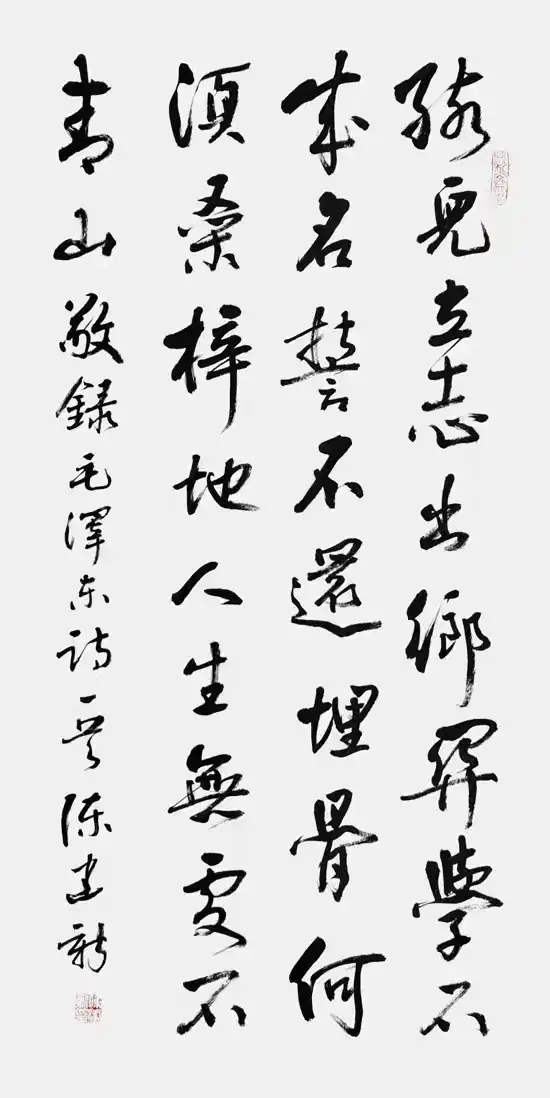 孩兒立志出鄉關學不
成名誓不還埋骨何
須桑梓地人生無處不
青山敬錄毛澤东詩一首陈建新